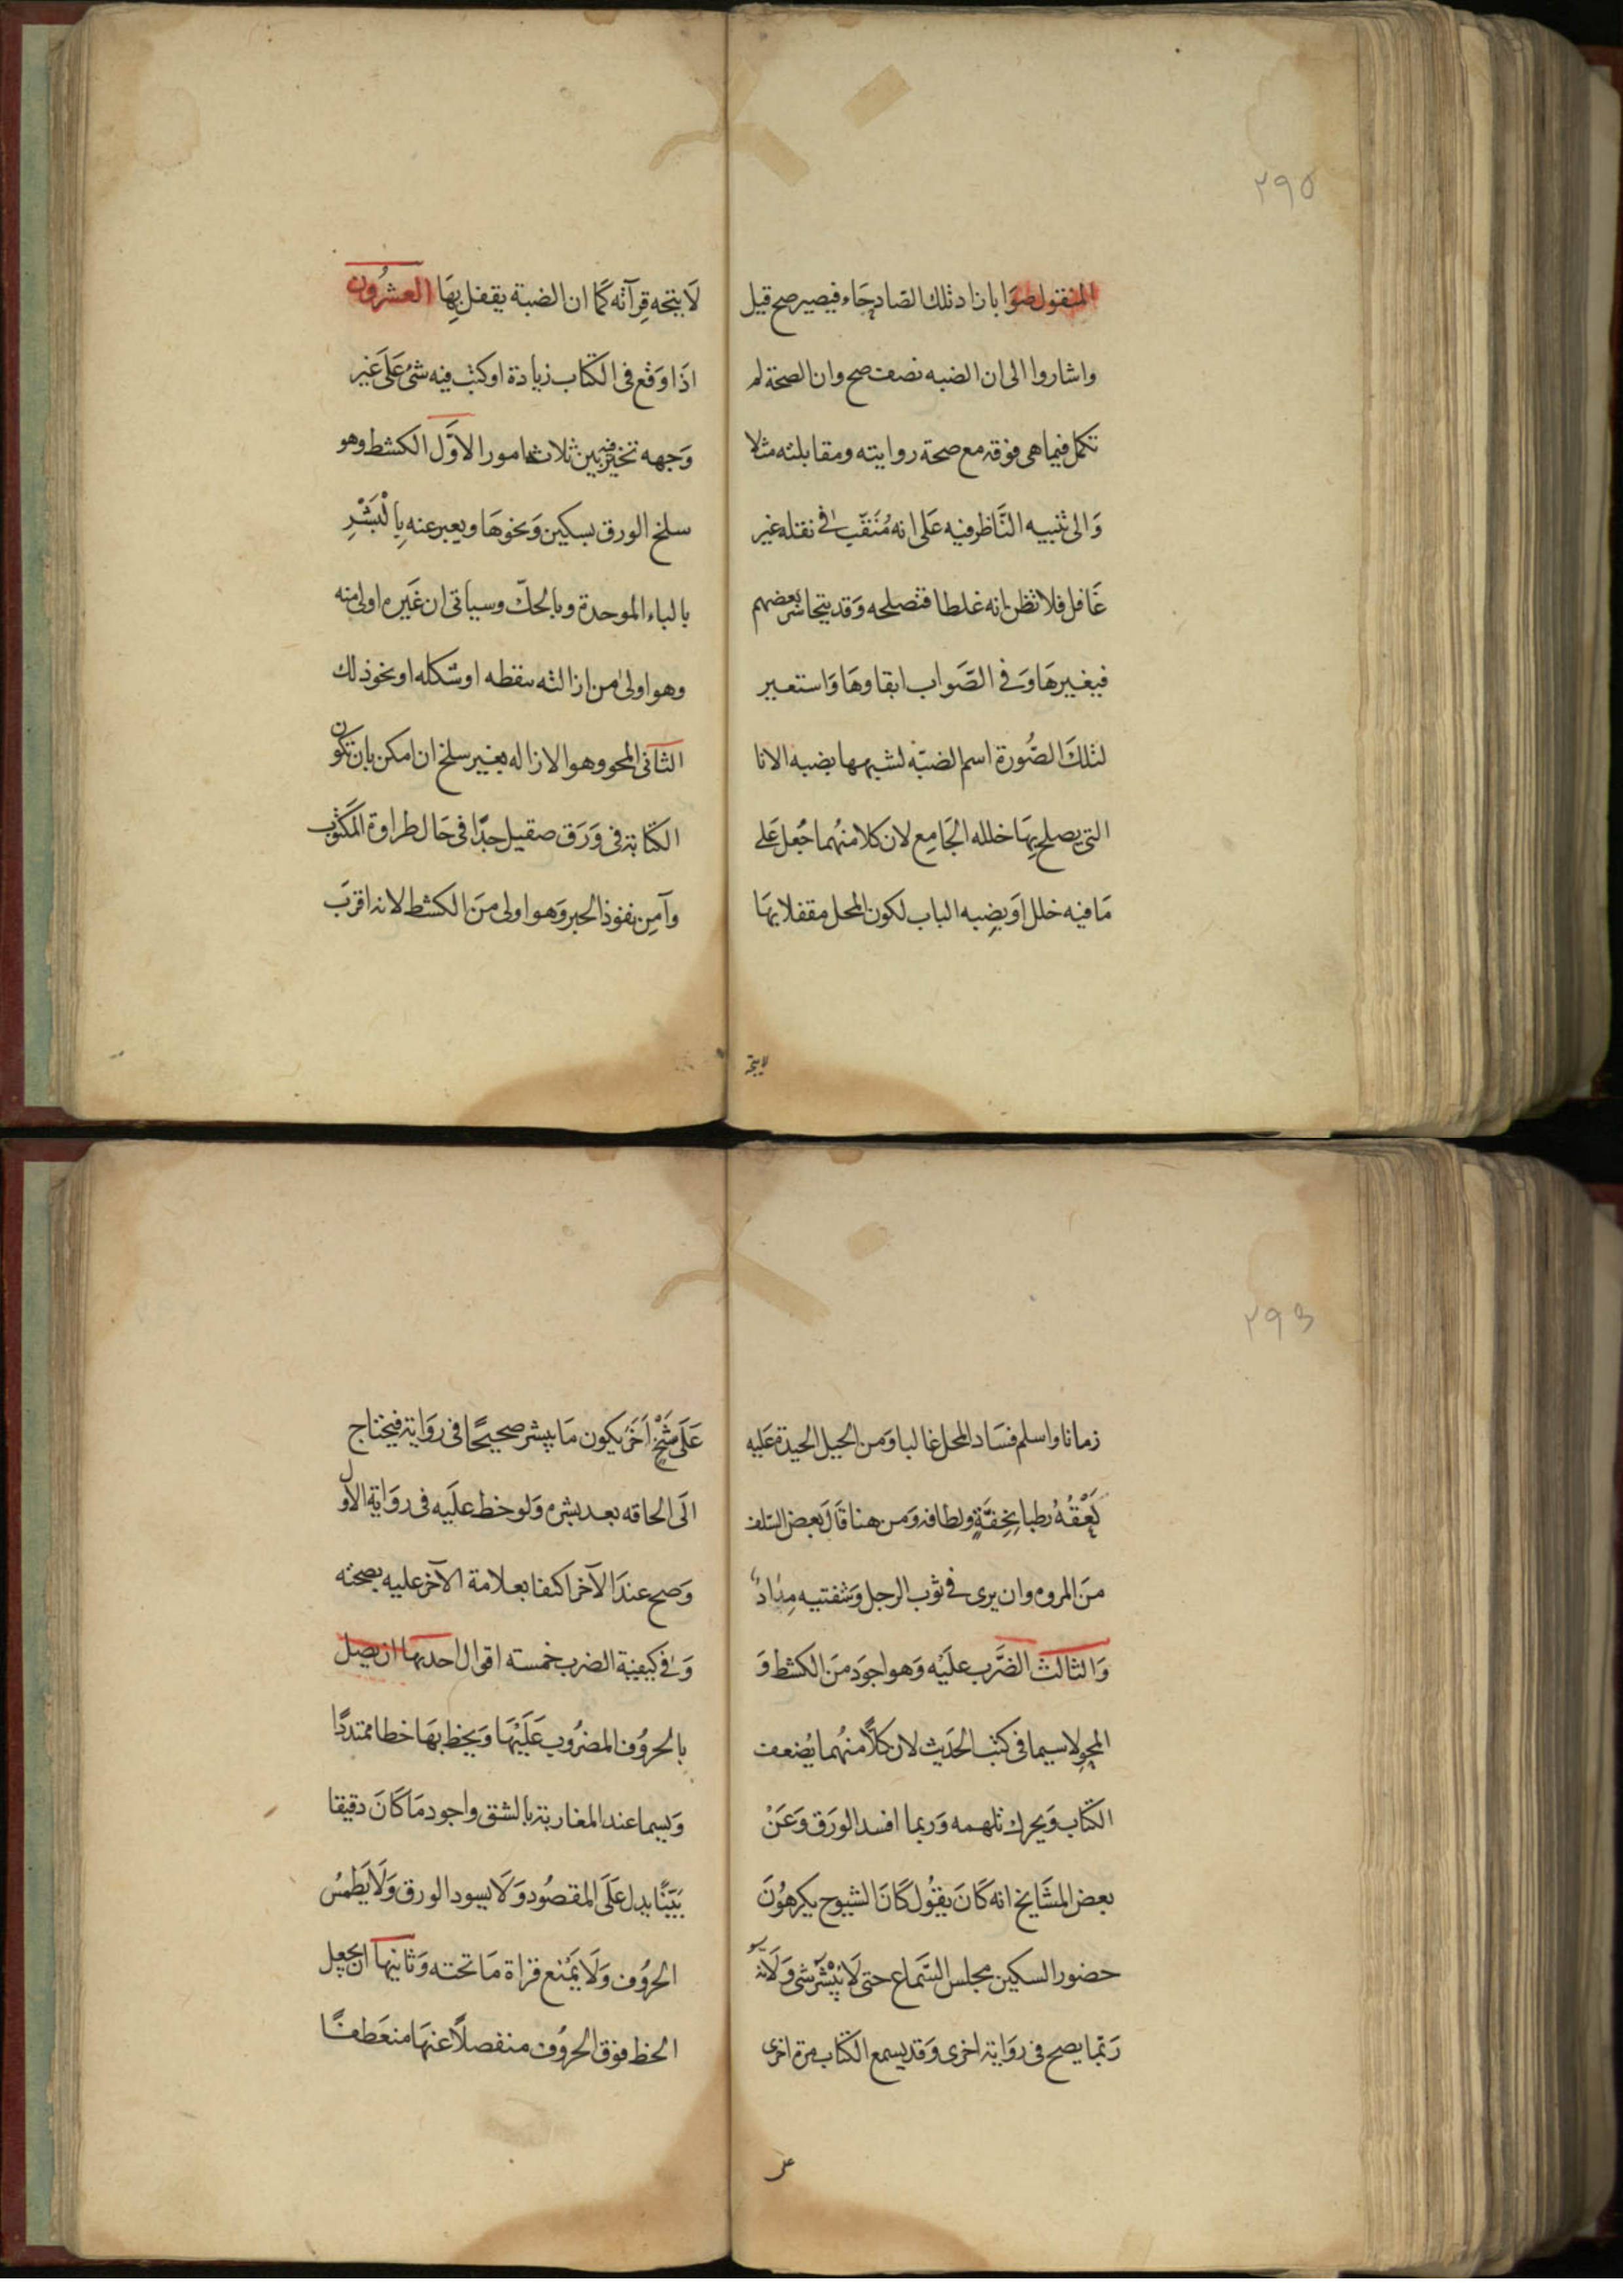 ٢٩٥
المنقول صوابا زاد تلك الصاد حَاء فيصير صح قيل
واشاروا الى ان الضبه نصف صح وان الصحة لم
تكمل فيما هى فوقه مع صحة روايته ومقابلته مثلا
وَالى تنبيه النَّاظر فيه عَلى انه مُتَنَقّب فى نقله غير
غَافل فلا تظن انه غلطا فتصلحه وَقد يتجاسر بعضهم
فيغيرهَا وَفى الصَّواب ابقاوهَا وَاستعير
لتلكَ الصُّورة اسم الضبّه لشبهها بضبه الانا
التى يصلح بِهَا خلله الجَامِع لان كلا منهُما جُعل عَلى
مَا فيه خلل اوَ بضِبه الباب لكون المحل مقفلا بهَا
لا يتجه
لَا يتجه قِرآته كَمَا ان الضبة يقفل بِهَا العشرُون
اذَا وَقع فى الكتاب زيادة او كتب فيه شئ عَلَى غَير
وَجهه تخير فيه بين ثلاثه امور الاوَّل الكشط وهو
سلخ الورق بسكين وَنحوهَا ويعبر عنه بِالْبَشْرِ
بالباء الموحدة وبالحكّ وسياتى ان غَيره اولى منه
وهو اولى من ازالته بنقطه او شكله او نحوذلك
الثانى المحو وهو الازاله بغير سلخ ان امكن بان تكون
الكتابة فى وَرَق صقيل جدّا فى حَال طراوة المكتوب
وآمِن نفوذ الحبر وَهو اولى منَ الكشط لانه اقربَ
٢٩٦
زمانا واسلم فسَاد المحل غالبا وَمن الحيل الجيدة عَليه
لَعْقُهُ رطبا بِخِفَّةٍ ولطافه وَمن هنا قَالَ بعض السّلف
منَ المروءه وان يرى فى ثوب الرجل وَشفتيه مِدَادُ
وَالثالث الضَّرب علَيْه وَهو اجوَد منَ الكشط وَ
المحو لا سيما فى كتب الحَديث لان كلاًّ منهُما يُضعف
الكتاب وَيحرك تلهمه وَربما افسد الورَق وَعَنْ
بعض المشَايخ انه كَانَ يقوُل كَانَ الشيوح يكرهوُنَ
حضور السكين مجلس السّماع حتى لَا يُبْشَر شى وَلَانه
رَبّما يصح فى روَاية اخرى وَقد يسمع الكتاب مرة اخرى
على
عَلَى شَيْخٍ آخَرَ يكون مَا يبشر صحيحًا فى روَاية فيحتاج
الَى الحاقه بعد بشره وَلو خط علَيه فى روَاية الاول
وَصح عندَ الآخر اكتفا بعلامة الآخر عليه بصحته
وَفى كيفية الضرب خمسته اقوال احديها ان يصل
بالحروُف المضرُوب عَلَيْهَا وَيخط بهَا خطا ممتدًّا
وَيسما عند المغاربة بالشق واجود مَا كَانَ دقيقا
بَيّنًا يدل عَلَى المقصُود وَلَا يسود الورق وَلَا يَطمسُ
الحروُف وَلَا يَمْنع قراة مَا تحته وَثانيها ان يجعل
الخط فوق الحروُف منفصلاً عنهَا منعَطفًا